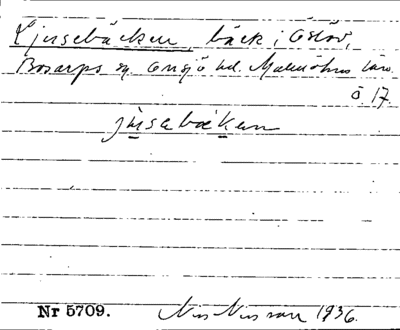 Ljusebäcken, bäck i Öslöv,
Bosarps sn. Onsjö hd. Malmöhus län.
ö. 17
jusebäken
Nr 5709. Nils Nilsson 1936.